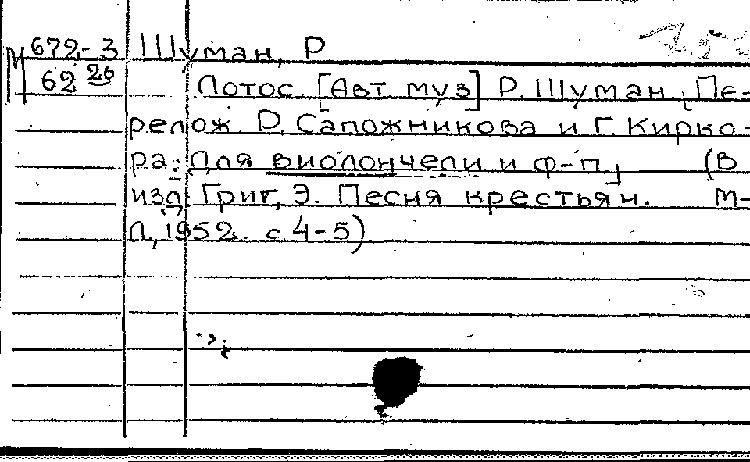 М 672-3 Шуман, Р
62 26 Лотос [Авт муз] Р. Шуман, Пе-
релож Р. Сапожникова и Г. Кирко-
ра. Для виолончели и ф-п] (В
изд. Григ, Э. Песня крестьян. М-
Л, 1952. с 4-5)